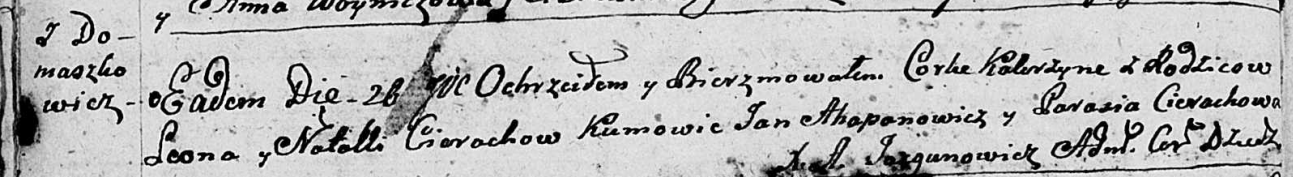 y Anna Woyniczowa
z Do-
maszko
wicz-
Eadem Die - 26 Ochrzciłem y Bierzmowałem Corke Katerzyne z Rodzicow
Leona y Natalli Cierachow Kumowie Jan Ahapanowicz y Parasia Cierachowa
X. A. Jazgunowicz Adm. Cer. Dziedz